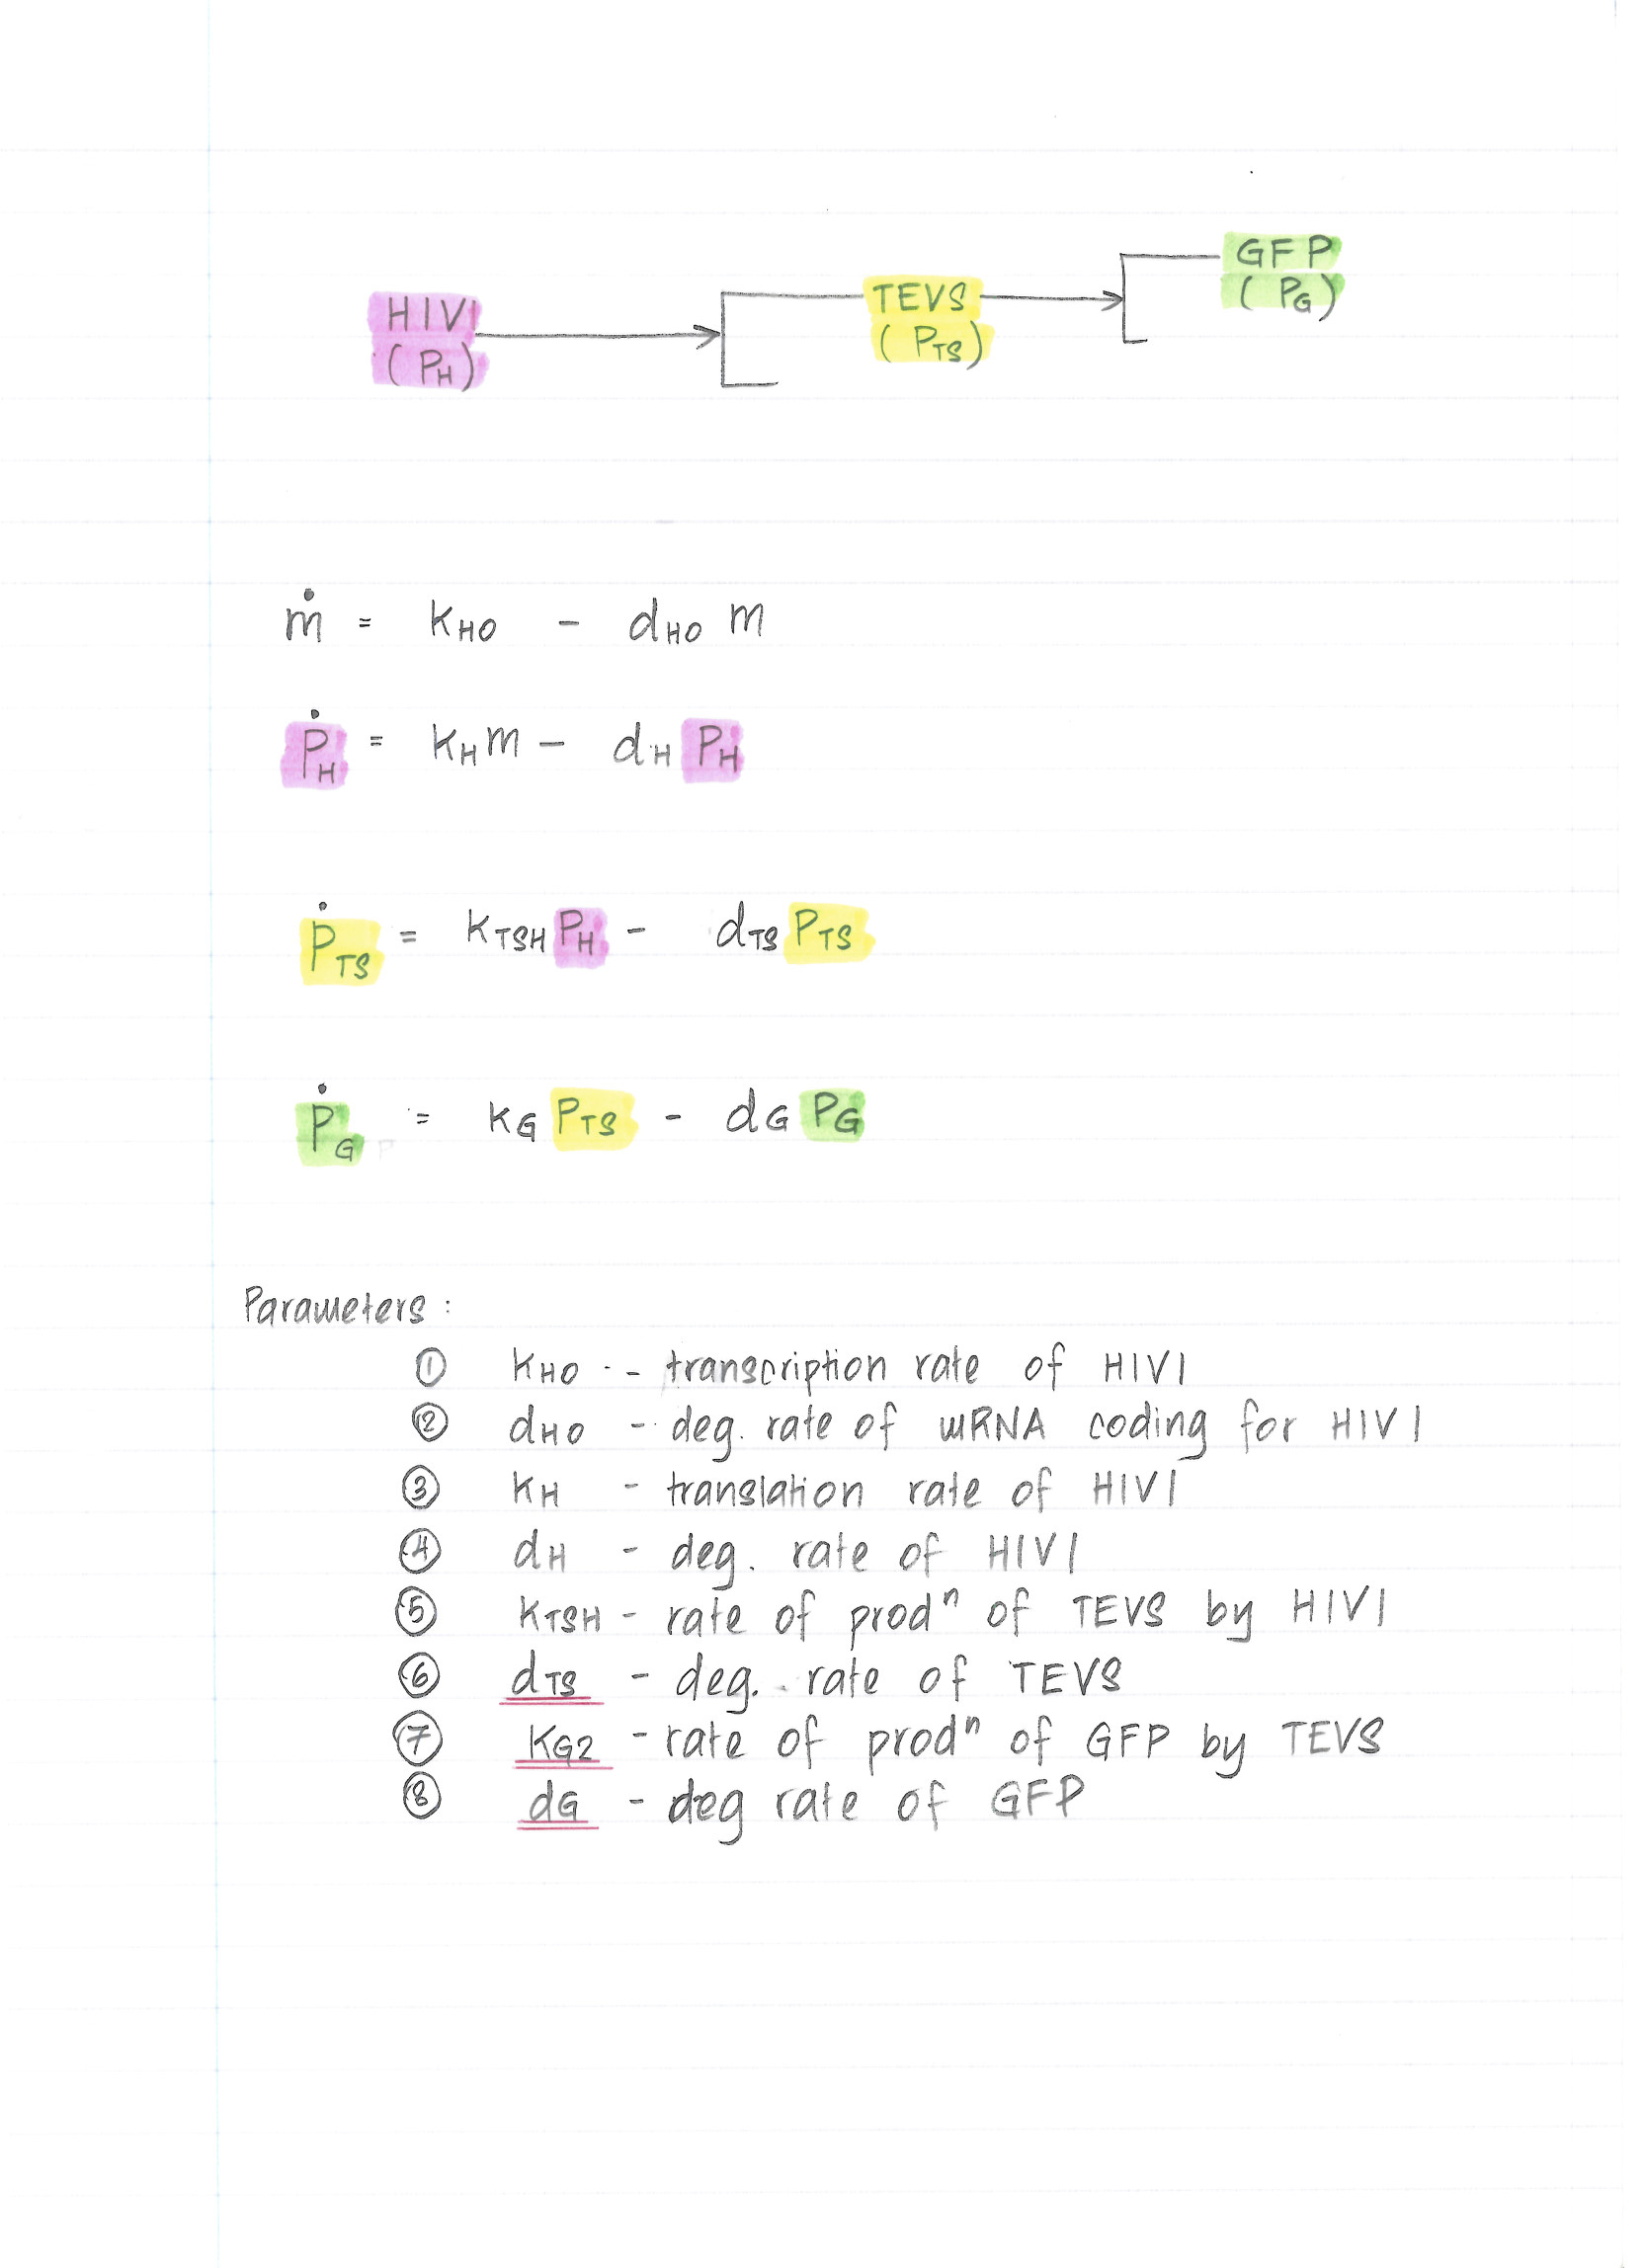 HIV1 TEVS GFP
(PH) (PTS) (PG)
ṁ = KHO - dHO m
ṖH = KH m - dH PH
ṖTS = KTSH PH - dTS PTS
ṖG = KG PTS - dG PG
Parameters :
① KHO - transcription rate of HIV1
② dHO - deg. rate of mRNA coding for HIV1
③ KH - translation rate of HIV1
④ dH - deg. rate of HIV1
⑤ KTSH - rate of prodⁿ of TEVS by HIV1
⑥ dTS - deg. rate of TEVS
⑦ KG2 - rate of prodⁿ of GFP by TEVS
⑧ dG - deg rate of GFP